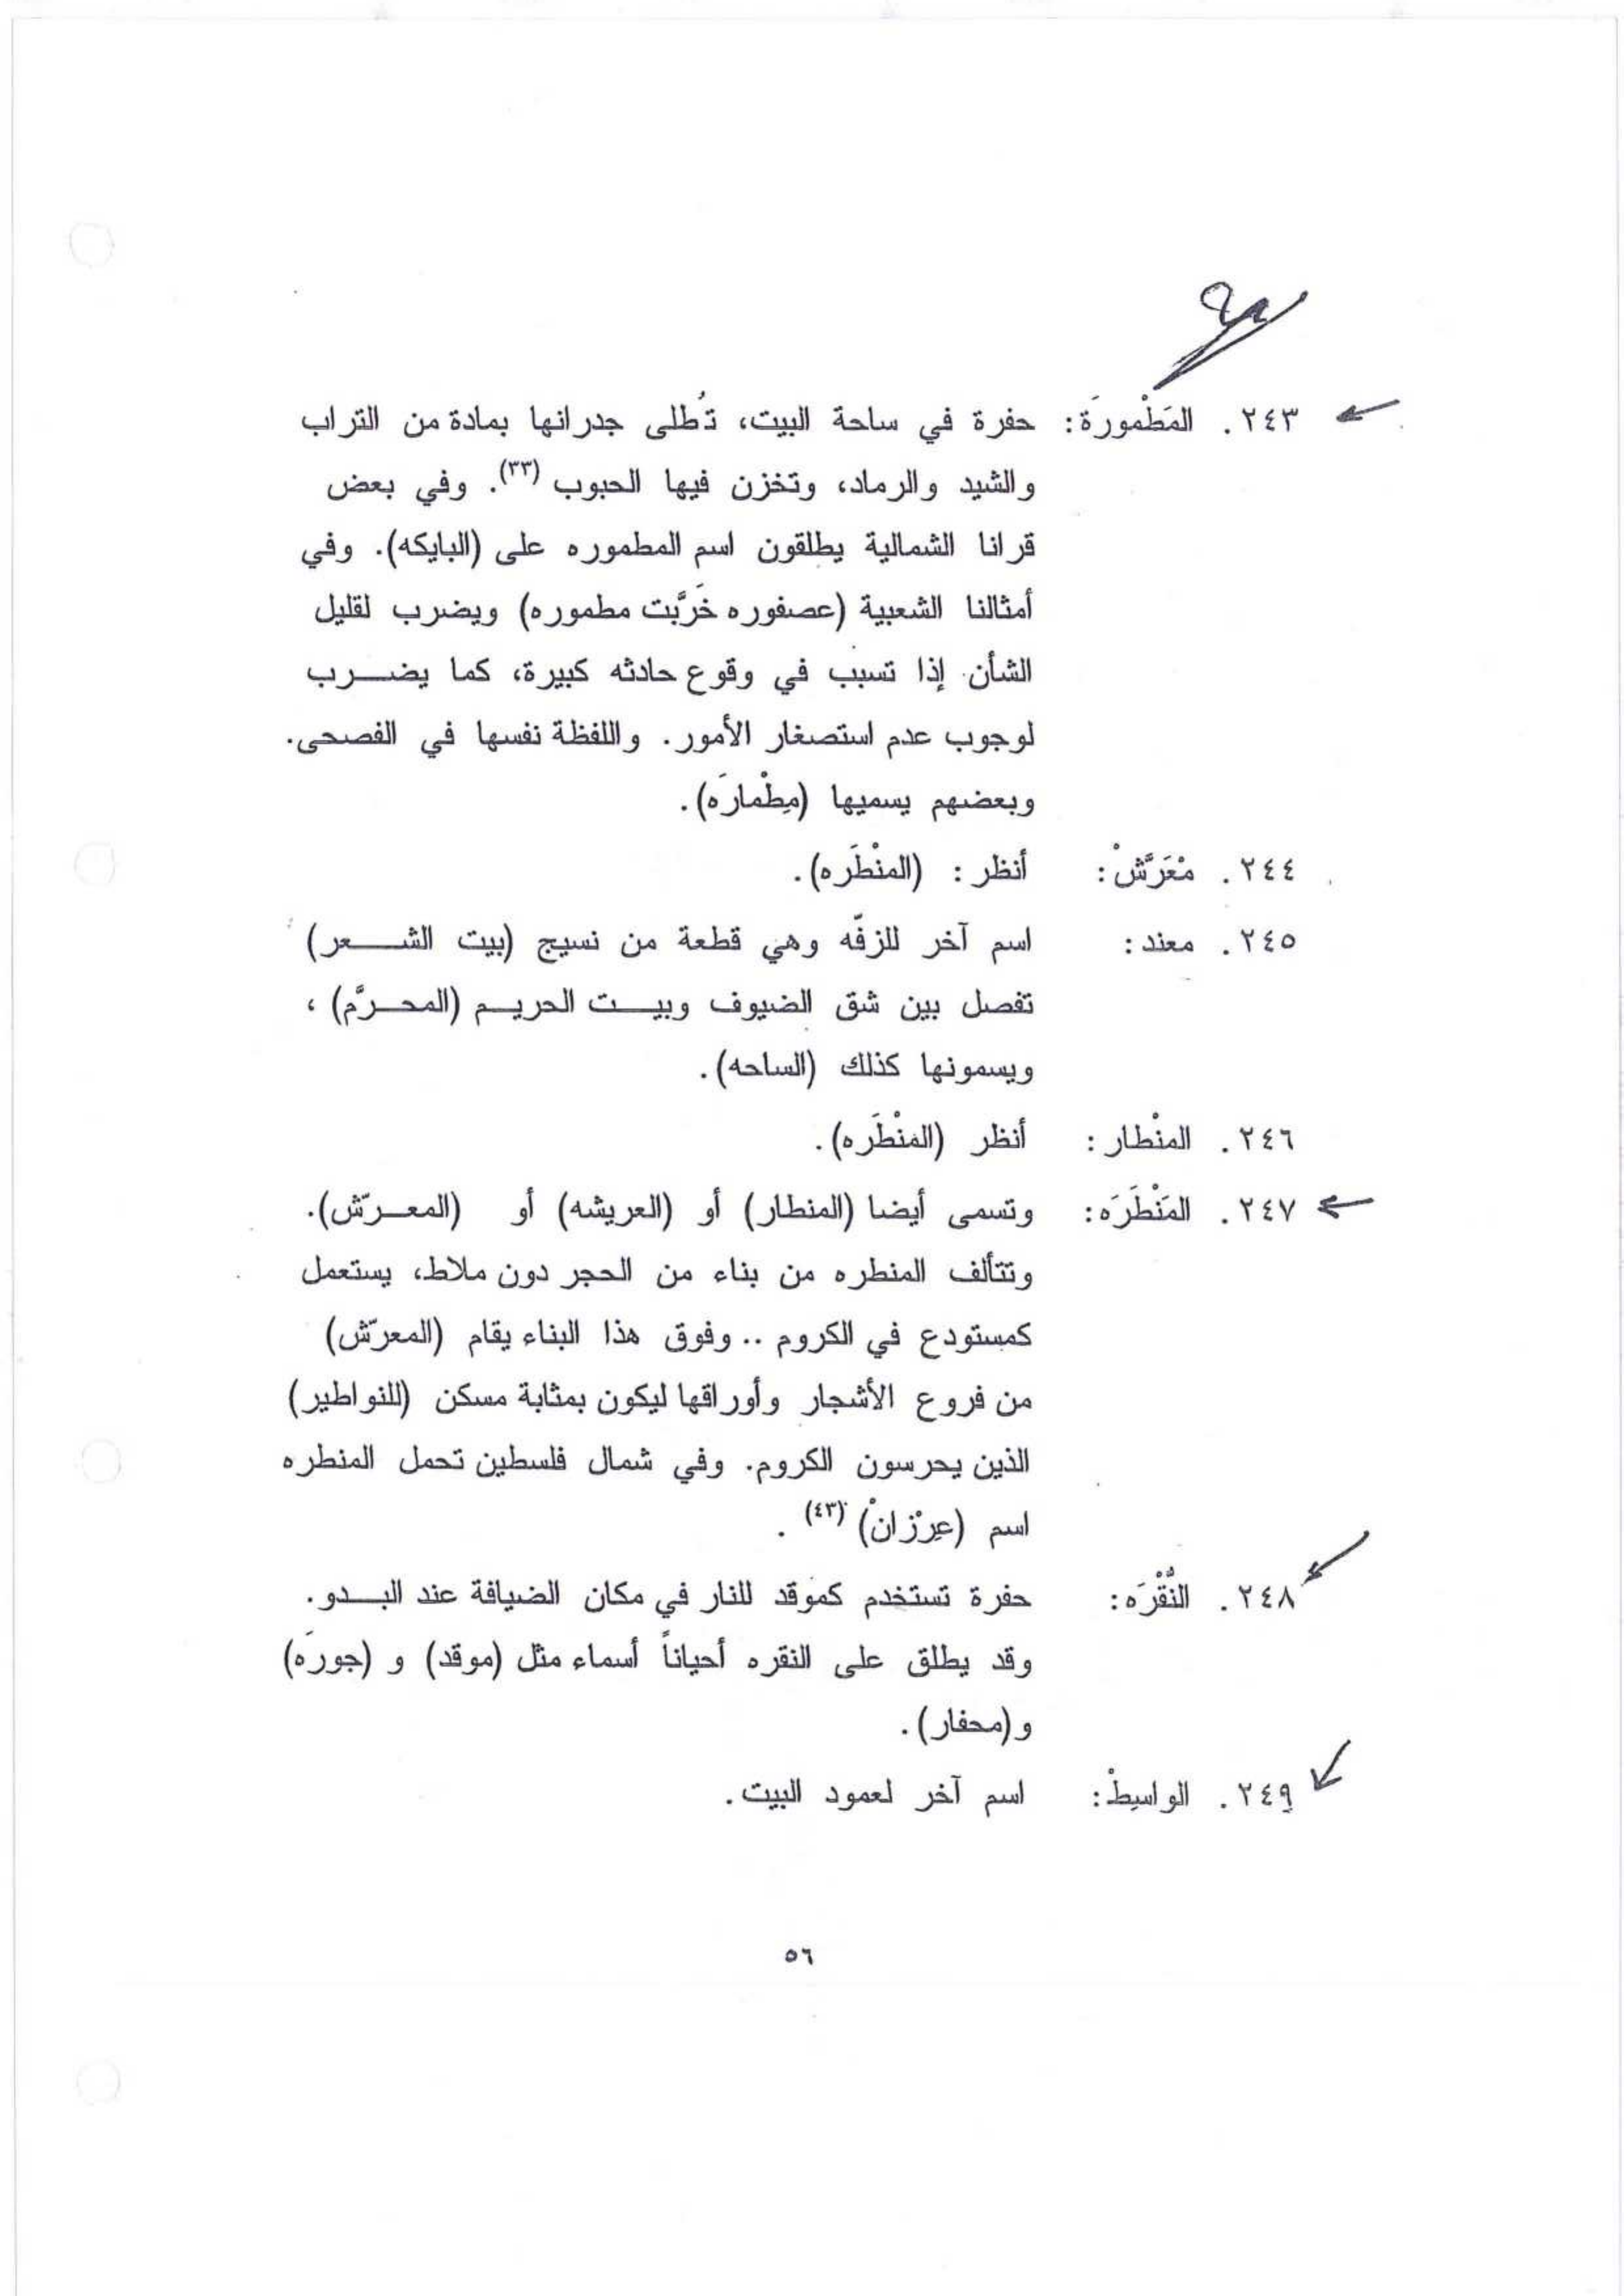 ٢٤٣. المَطْمورَة: حفرة في ساحة البيت، تُطلى جدرانها بمادة من التراب
والشيد والرماد، وتخزن فيها الحبوب (٣٣). وفي بعض
قرانا الشمالية يطلقون اسم المطموره على (البايكه). وفي
أمثالنا الشعبية (عصفوره خَرَّبت مطموره) ويضرب لقليل
الشأن إذا تسبب في وقوع حادثه كبيرة، كما يضرب
لوجوب عدم استصغار الأمور. واللفظة نفسها في الفصحى.
وبعضهم يسميها (مِطْمارَه).
٢٤٤. مْعَرَّشْ: أنظر : (المنْطَره).
٢٤٥. معند: اسم آخر للزفّه وهي قطعة من نسيج (بيت الشعر)
تفصل بين شق الضيوف وبيت الحريم (المحرَّم) ،
ويسمونها كذلك (الساحه).
٢٤٦. المنْطار: أنظر (المنْطَره).
٢٤٧. المَنْطَرَه: وتسمى أيضا (المنطار) أو (العريشه) أو (المعرّش).
وتتألف المنطره من بناء من الحجر دون ملاط، يستعمل
كمستودع في الكروم .. وفوق هذا البناء يقام (المعرّش)
من فروع الأشجار وأوراقها ليكون بمثابة مسكن (للنواطير)
الذين يحرسون الكروم. وفي شمال فلسطين تحمل المنطره
اسم (عِرْزانْ) (٤٣) .
٢٤٨. النُّقْرَه: حفرة تستخدم كموقد للنار في مكان الضيافة عند البدو.
وقد يطلق على النقره أحياناً أسماء مثل (موقد) و (جورَه)
و(محفار).
٢٤٩. الواسِطْ: اسم آخر لعمود البيت.
٥٦